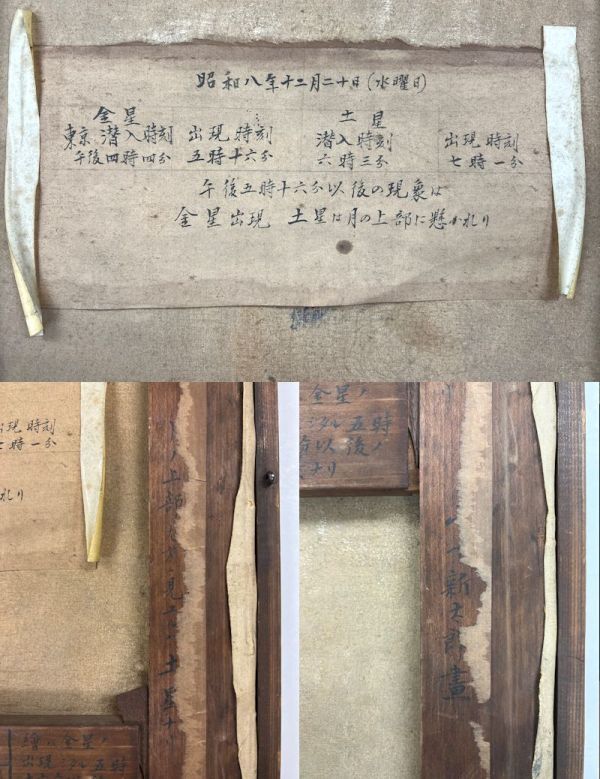 昭和八年十二月二十日(水曜日)
金星
東京 潜入時刻 出現時刻
午後四時四分 五時十六分
土星
潜入時刻 出現時刻
六時三分 七時一分
午後五時十六分以後の現象は
金星出現 土星は月の上部に懸かれり
出現時刻
七時一分
れり
上部
見
土星ナリ
繪ハ金星ノ
出現シタル五時
金星ノ
シタル五時
分以後ノ
ナリ
新
畫